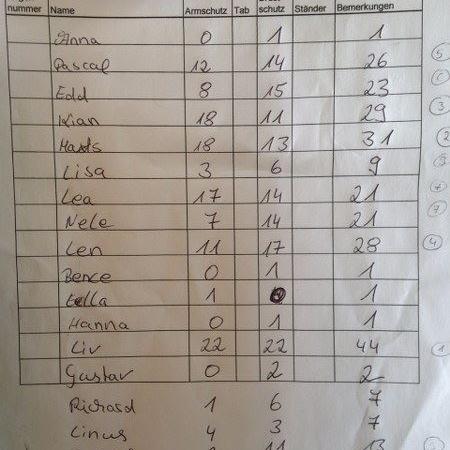 nummer Name Armschutz Tab schutz Ständer Bemerkungen
Anna 0 1 1
Pascal 12 14 26 5
Edd 8 15 23
Kian 18 11 29 3
Mats 18 13 31 2
Lisa 3 6 9
Lea 17 14 21
Nele 7 14 21 7
Len 11 17 28 4
Bence 0 1 1
Ella 1 0 1
Hanna 0 1 1
Liv 22 22 44 1
Gustav 0 2 2
Richard 1 6 7
Linus 4 3 7
11 13